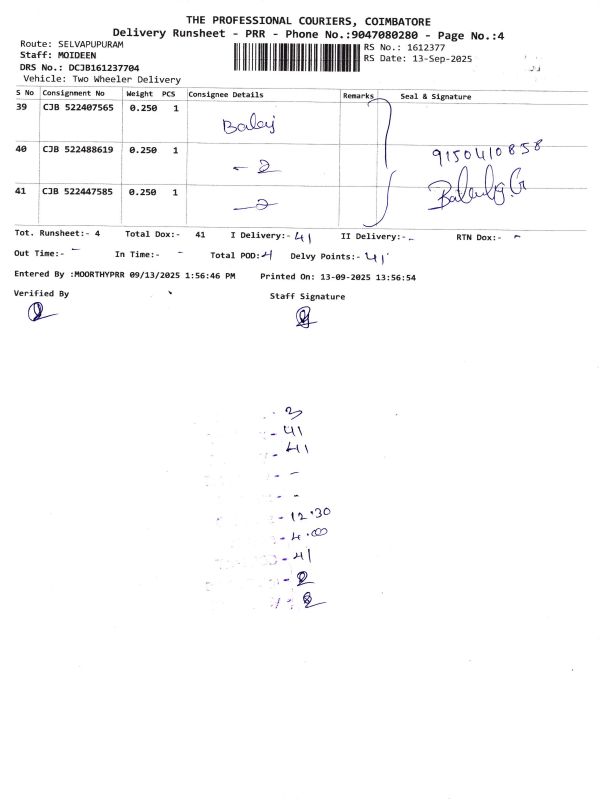 THE PROFESSIONAL COURIERS, COIMBATORE
Delivery Runsheet - PRR - Phone No.:9047080280 - Page No.:4
Route: SELVAPUPURAM
RS No.: 1612377
Staff: MOIDEEN
RS Date: 13-Sep-2025
DRS No.: DCJB161237704
Vehicle: Two Wheeler Delivery
S No Consignment No Weight PCS Consignee Details Remarks Seal & Signature
39 CJB 522407565 0.250 1 Balaj
40 CJB 522488619 0.250 1 9150410858
41 CJB 522447585 0.250 1
Tot. Runsheet:- 4 Total Dox:- 41 I Delivery:- 41 II Delivery:- - RTN Dox:- -
Out Time:- - In Time:- - Total POD: 4 Delvy Points:- 41
Entered By :MOORTHYPRR 09/13/2025 1:56:46 PM Printed On: 13-09-2025 13:56:54
Verified By Staff Signature
- 3
- 41
- 41
- -
- -
- 12.30
- 4.00
- 41